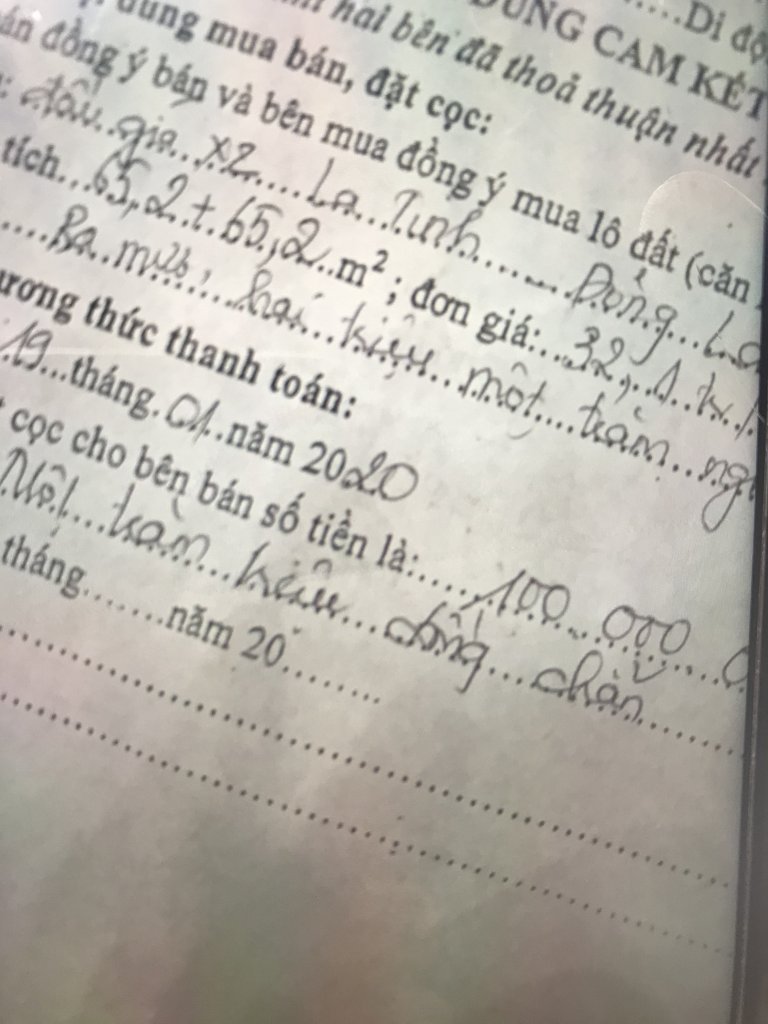 Di độ
DUNG CAM KẾT
hai bên đã thoả thuận nhất
dung mua bán, đặt cọc:
án đồng ý bán và bên mua đồng ý mua lô đất (căn
: đấu giá X2 La Tinh Đông La
tích 65,2 + 65,2 m²; đơn giá: 32,1 tr/
Ba mươi hai triệu một trăm ng
ương thức thanh toán:
19 tháng 01 năm 2020
cọc cho bên bán số tiền là: 100 000 0
Một trăm triệu đồng chẵn
tháng.......năm 20........